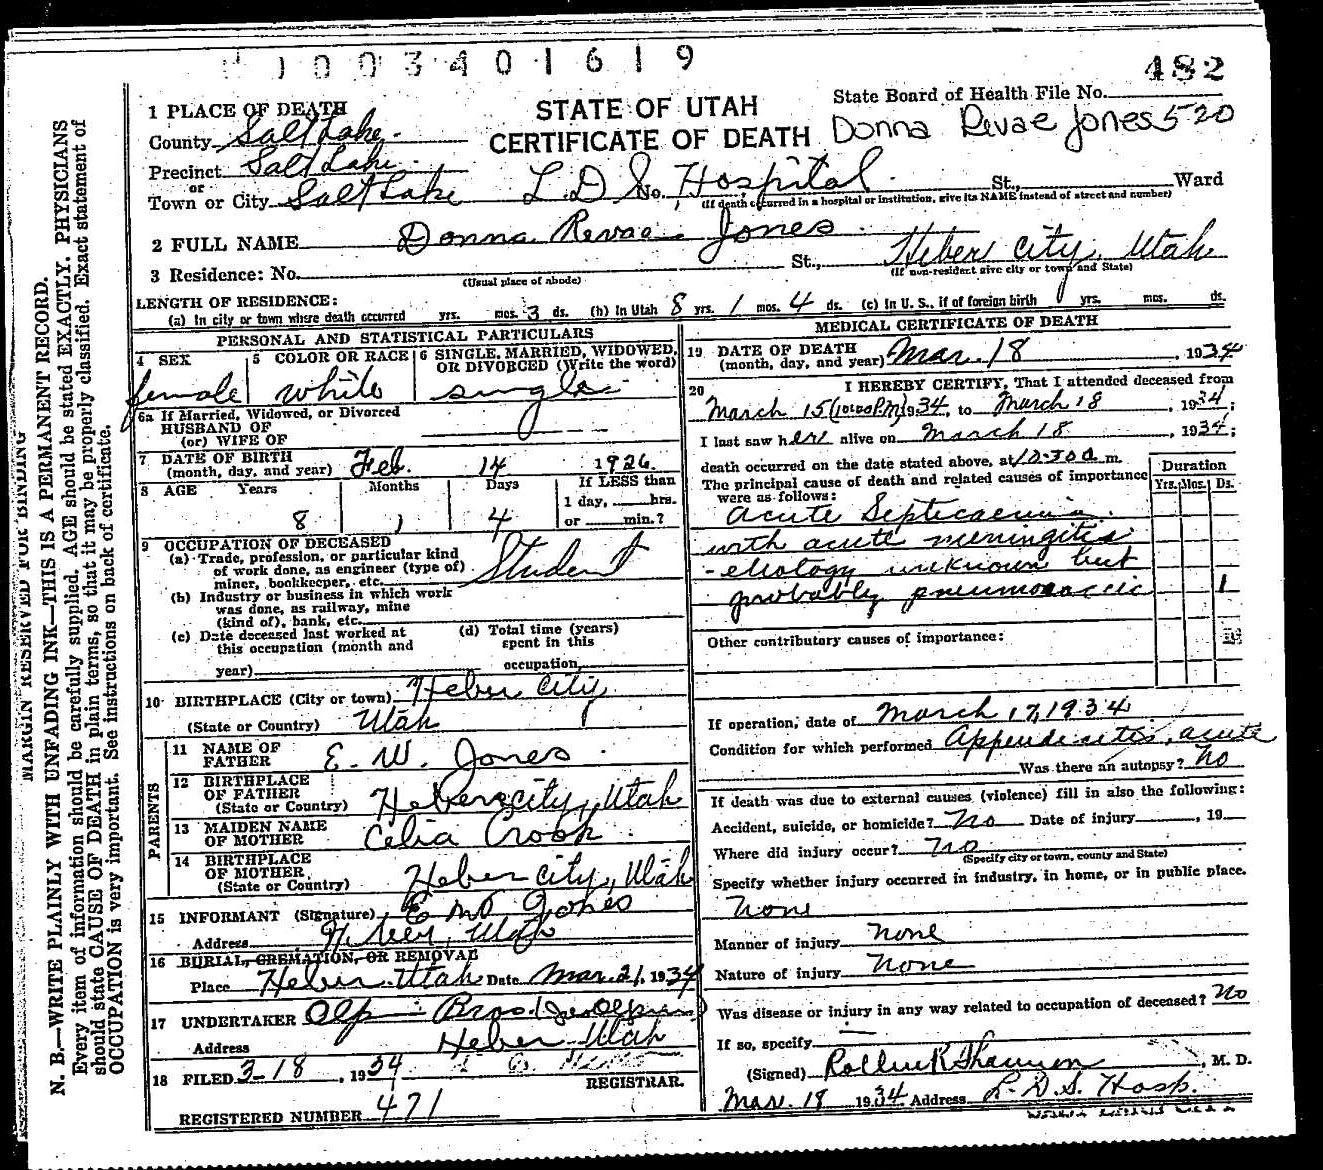 1003401619
482
STATE OF UTAH
CERTIFICATE OF DEATH
State Board of Health File No.
Donna Revae Jones 520
1 PLACE OF DEATH
County Salt Lake
Precinct Salt Lake
or
Town or City Salt Lake L D S No. Hospital St., Ward
(If death occurred in a hospital or institution, give its NAME instead of street and number)
2 FULL NAME Donna Revae Jones
3 Residence: No. St., Heber City, Utah
(Usual place of abode) (If non-resident give city or town and State)
LENGTH OF RESIDENCE:
(a) In city or town where death occurred yrs. mos. 3 ds. (b) In Utah 8 yrs. 1 mos. 4 ds. (c) In U. S., if of foreign birth yrs. mos. ds.
PERSONAL AND STATISTICAL PARTICULARS
4 SEX female
5 COLOR OR RACE white
6 SINGLE, MARRIED, WIDOWED, OR DIVORCED (Write the word) single
6a If Married, Widowed, or Divorced
HUSBAND OF
(or) WIFE OF
7 DATE OF BIRTH
(month, day, and year) Feb. 14 1926
8 AGE Years 8 Months 1 Days 4 If LESS than
1 day, hrs.
or min.?
9 OCCUPATION OF DECEASED
(a) Trade, profession, or particular kind
of work done, as engineer (type of)
miner, bookkeeper, etc. Student
(b) Industry or business in which work
was done, as railway, mine
(kind of), bank, etc.
(c) Date deceased last worked at
this occupation (month and
year)
(d) Total time (years)
spent in this
occupation
10 BIRTHPLACE (City or town) Heber City
(State or Country) Utah
PARENTS
11 NAME OF
FATHER E. W. Jones
12 BIRTHPLACE
OF FATHER
(State or Country) Heber City, Utah
13 MAIDEN NAME
OF MOTHER Celia Crook
14 BIRTHPLACE
OF MOTHER
(State or Country) Heber City, Utah
15 INFORMANT (Signature) Jones
Address Heber, Utah
16 BURIAL, CREMATION, OR REMOVAL
Place Heber Utah Date Mar. 21, 1934
17 UNDERTAKER Olp Bros.
Address Heber, Utah
18 FILED 3-18, 1934
REGISTRAR.
REGISTERED NUMBER 471
MEDICAL CERTIFICATE OF DEATH
19 DATE OF DEATH
(month, day, and year) Mar. 18, 1934
20 I HEREBY CERTIFY, That I attended deceased from
March 15 , 1934, to March 18, 1934;
I last saw her alive on March 18, 1934;
death occurred on the date stated above, at 10:30 a m.
The principal cause of death and related causes of importance
were as follows:
Duration
Yrs. Mos. Ds.
acute Septicaemia
with acute meningitis
- etiology unknown but
probably pneumococcic 1
Other contributory causes of importance:
If operation, date of March 17, 1934
Condition for which performed Appendicitis, acute
Was there an autopsy? No
If death was due to external causes (violence) fill in also the following:
Accident, suicide, or homicide? No Date of injury , 19
Where did injury occur? No
(Specify city or town, county and State)
Specify whether injury occurred in industry, in home, or in public place.
None
Manner of injury None
Nature of injury None
Was disease or injury in any way related to occupation of deceased? No
If so, specify
(Signed) , M. D.
Mar. 18 1934 Address L. D. S. Hosp.
MARGIN RESERVED FOR BINDING
N. B.—WRITE PLAINLY WITH UNFADING INK—THIS IS A PERMANENT RECORD.
Every item of information should be carefully supplied. AGE should be stated EXACTLY. PHYSICIANS
should state CAUSE OF DEATH in plain terms, so that it may be properly classified. Exact statement of
OCCUPATION is very important. See instructions on back of certificate.